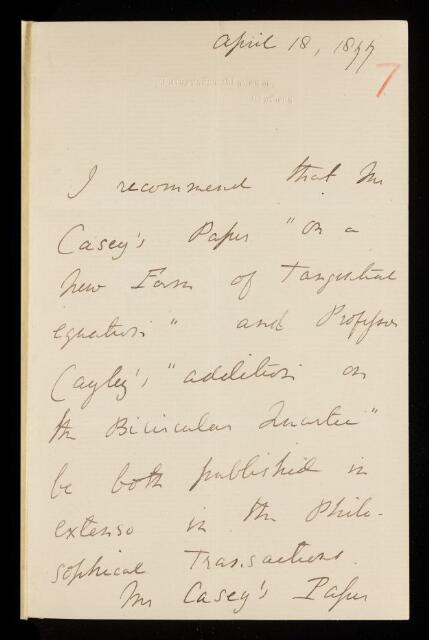 April 18, 1877
7
I recommend that Mr
Casey's Paper "On a
New Form of Tangential
equation" and Professor
Cayley's "addition on
the Bicircular Quartic"
be both published in
extenso in the Philo-
sophical Transactions.
Mr Casey's Paper